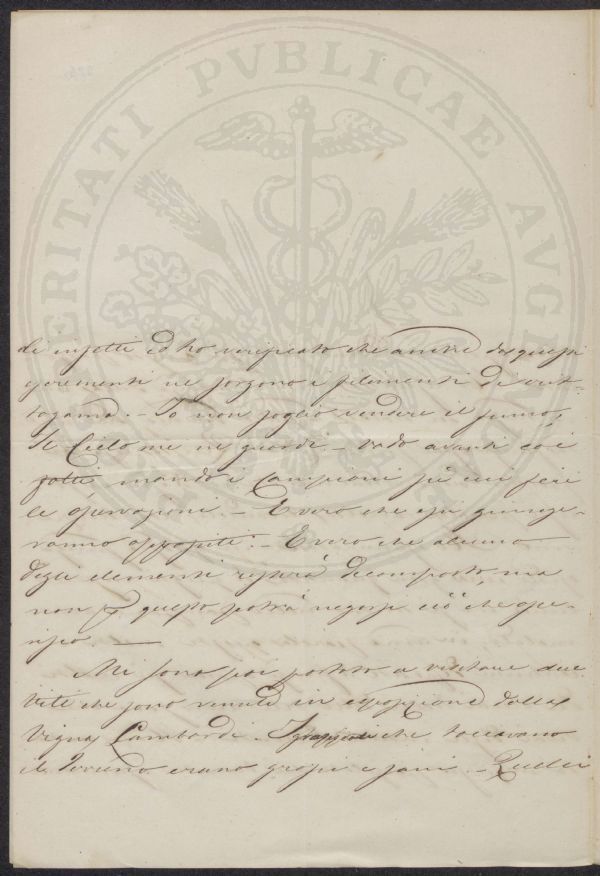 PROSPERITATI PVBLICAE AVGENDAE
di insetti ed ho verificato che anche da questi
gerementi ne sorgono i filamenti di crit-
togama. - Io non soglio vendere il fumo,
il Cielo me ne guardi. - Vado avanti co' i
fatti, mando i Campioni su cui feci
le osservazioni. - È vero che essi giunge-
ranno appassiti. - È vero che alcuno
degli elementi resterà decomposto, ma
non per questo potrà negarsi ciò che asse-
risco. -
Mi sono poi portato a visitare due
viti che sono venute in esposizione dalla
Vigna Lombardi. I grappoli che toccavano
il terreno erano grossi e sani. - Quelli